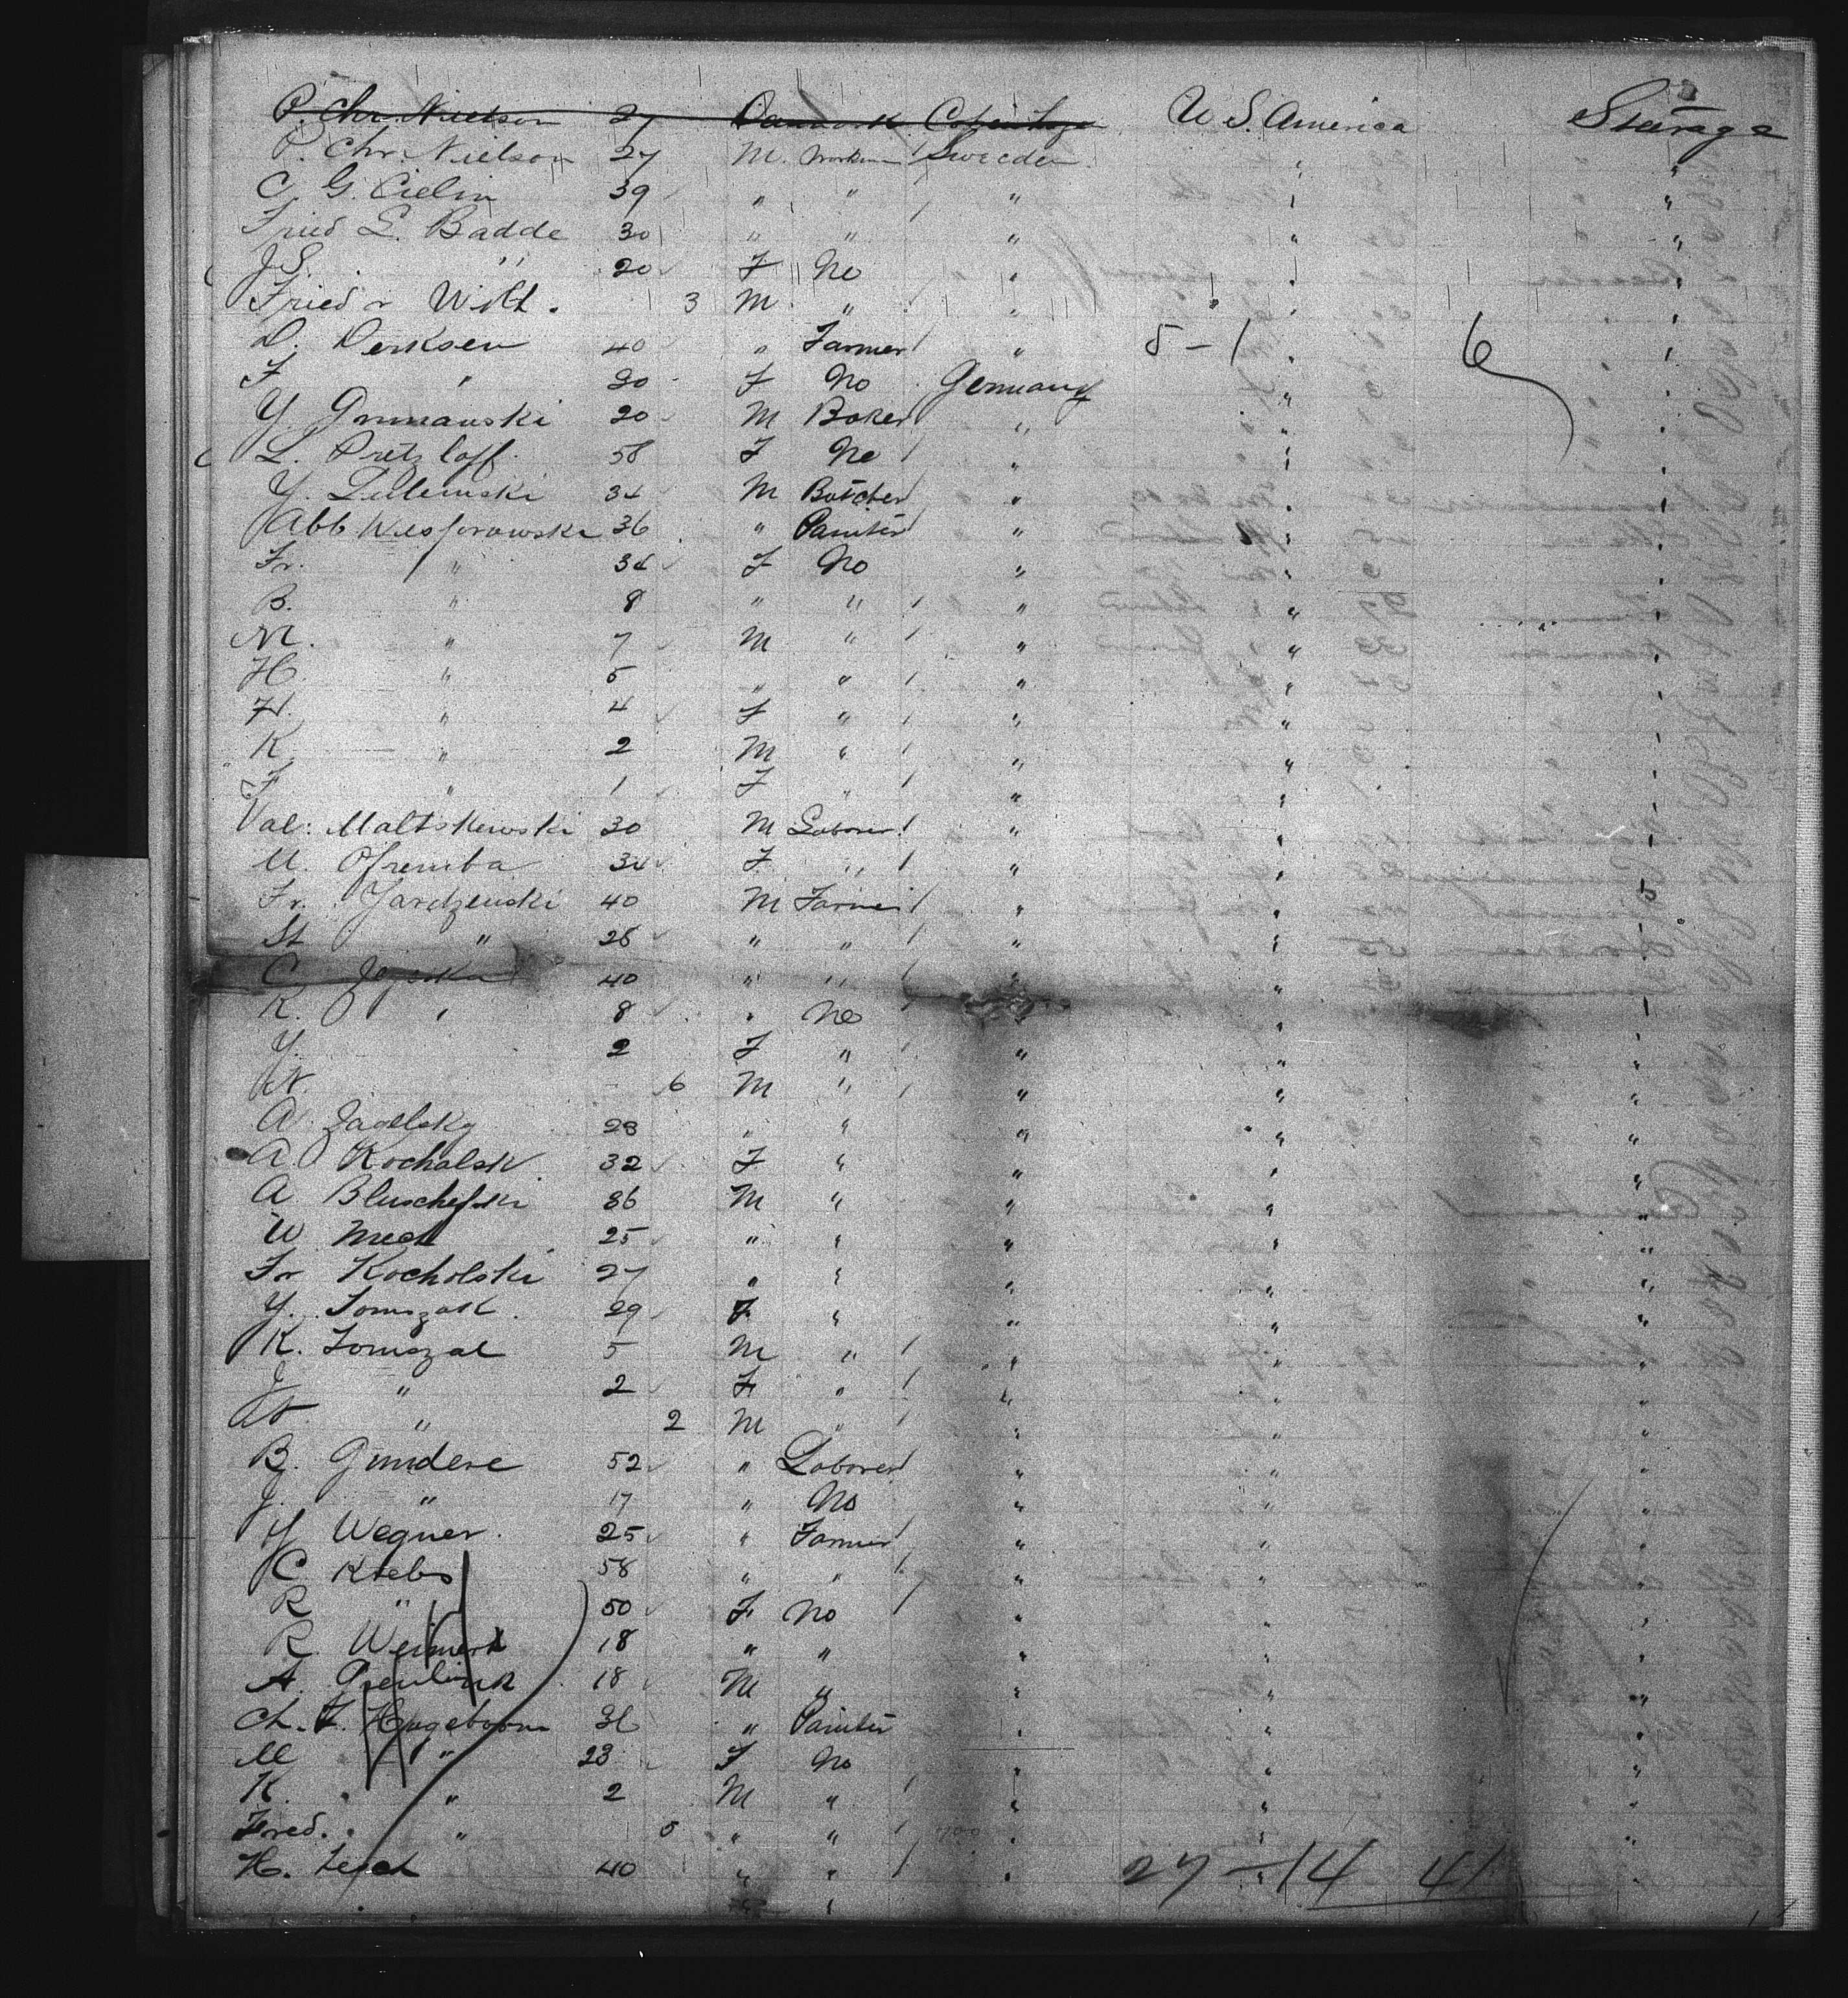 P. Chr. Nielson 27 Danmark Copenhage U S. America Steerage
P. Chr. Nielson 27 M. Workm Sweeden " "
C. G. Cielin 39 " " " " "
Fried L. Badde 30 " " " " "
J S. " 20 F No " " "
Fried r Wilh. 3 M " " " "
D. Derksen 40 " Farmer " 5-1 " 6 "
F " 30 F No Germany " "
Y. 20 M Baker " " "
L. Pretzloff 58 F No " " "
Y. 34 M Butcher " " "
Abb 36 " Painter " " "
Fr. " 34 F No " " "
B. " 8 " " " " "
M. " 7 M " " " "
H. " 5 " " " " "
H. " 4 F " " " "
K " 2 M " " " "
F " 1 F " " " "
Val. Maltskewski 30 M Laborer " " "
M. Ofremba 34 F " " " "
Fr. Jardzenski 40 M Farmer " " "
St " 28 " " " " "
C. 40 " " " " "
K. " 8 " No " " "
Y. 2 F " " " "
N. 6 M " " " "
A. 28 " " " " "
A. Kochalsk 32 F " " " "
A Bluschefski 36 M " " " "
W. Mech 25 " " " " "
Fr Kocholski 27 " " " " "
Y. Tomszak 29 F " " " "
K. Tomszak 5 M " " " "
J " 2 F " " " "
N " 2 M " " " "
B. Gundere 52 " Laborer " " "
J. " 17 " No " " "
Y Wegner 25 " Farmer " " "
C Krebs 58 " " " " "
R " 50 F No " " "
R. Weimert 18 " " " " "
A. 18 M " " " "
Ch. F. Hugeboom 36 " Painter " " "
M " 23 F No " " "
K. " 2 M " " " "
Fred. " 5 " " " " "
H. 40 " " " 27-14 41